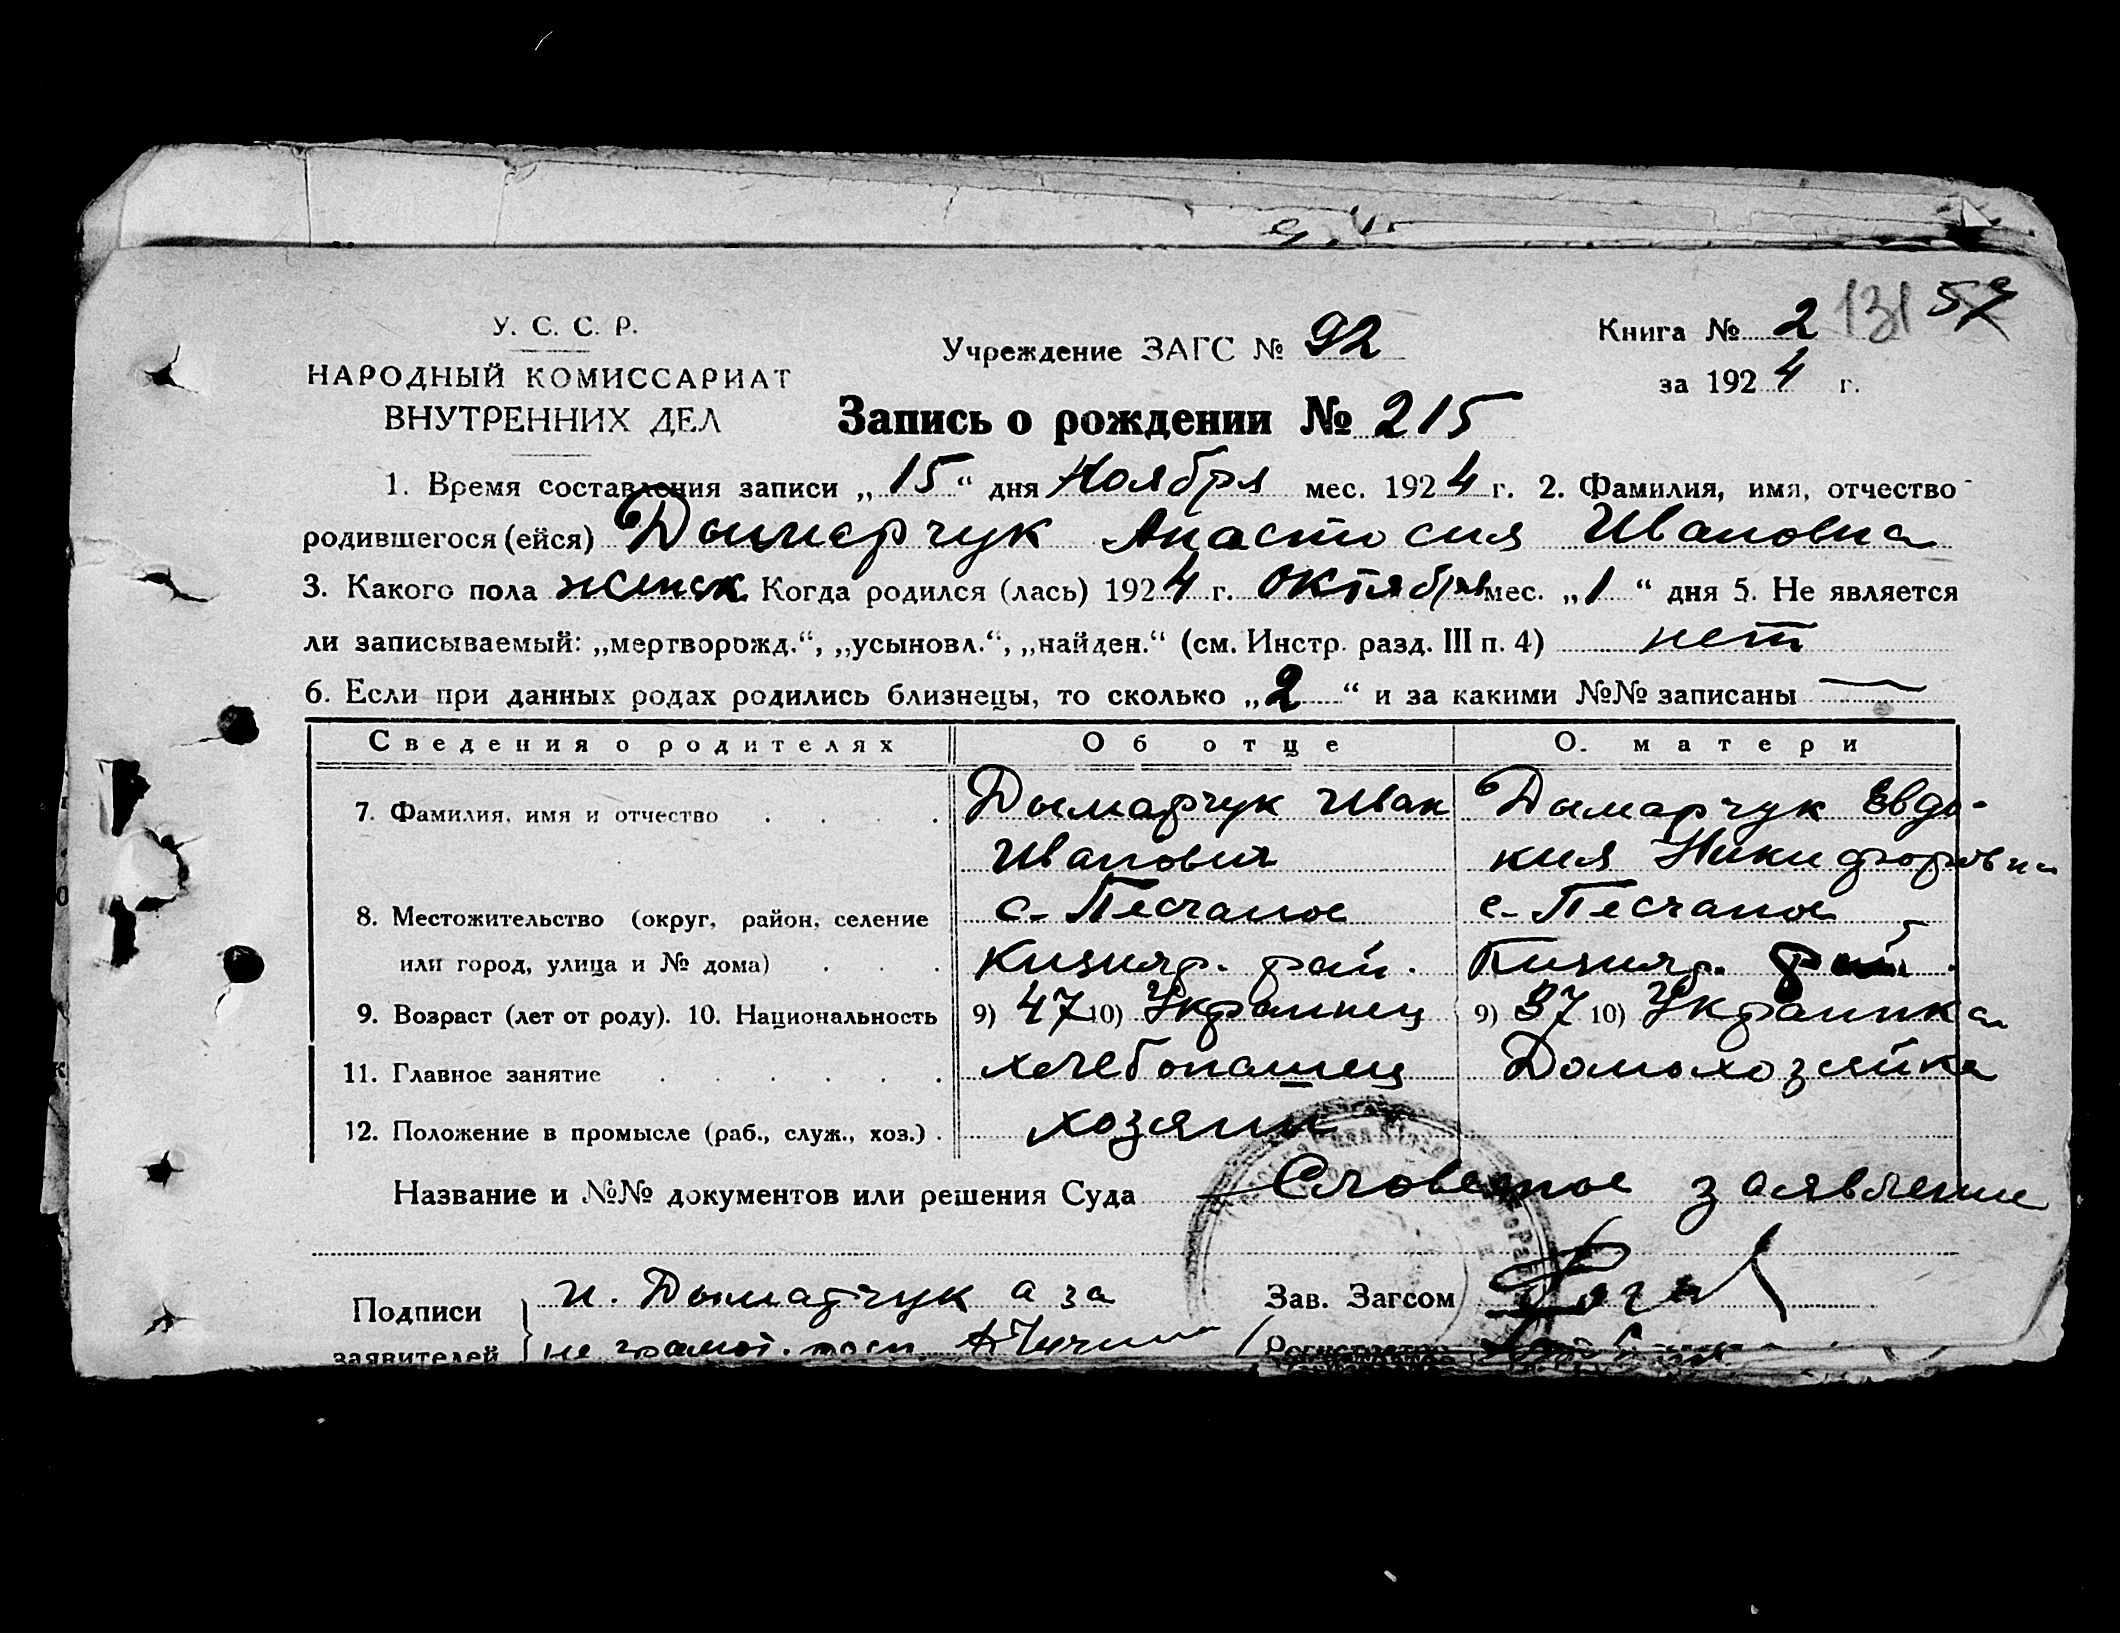 131 57
У. С. С. Р.
НАРОДНЫЙ КОМИССАРИАТ
ВНУТРЕННИХ ДЕЛ
Учреждение ЗАГС № 92
Книга № 2
за 1924 г.
Запись о рождении № 215
1. Время составления записи „15“ дня Ноября мес. 1924 г. 2. Фамилия, имя, отчество
родившегося (ейся) Дымарчук Анастосия Ивановна
3. Какого пола женск Когда родился (лась) 1924 г. октября мес. „1“ дня 5. Не является
ли записываемый: „мертворожд.“, „усыновл.“, „найден.“ (см. Инстр. разд. III п. 4) нет
6. Если при данных родах родились близнецы, то сколько „2“ и за какими №№ записаны —
Сведения о родителях Об отце О. матери
7. Фамилия, имя и отчество Дымарчук Иван Дымарчук Евдо-
Иванович кия Никифоровна
8. Местожительство (округ, район, селение с. Песчаное с. Песчаное
или город, улица и № дома) Кизияр. рай. Кизияр. рай.
9. Возраст (лет от роду). 10. Национальность 9) 47 10) Украинец 9) 37 10) Украинка
11. Главное занятие хлебопашец Домохозяйка
12. Положение в промысле (раб., служ., хоз.) хозяин
Название и №№ документов или решения Суда Словесное заявление
Подписи И. Дымарчук а за Зав. Загсом
заявителей не грамот. расп. Регистратор